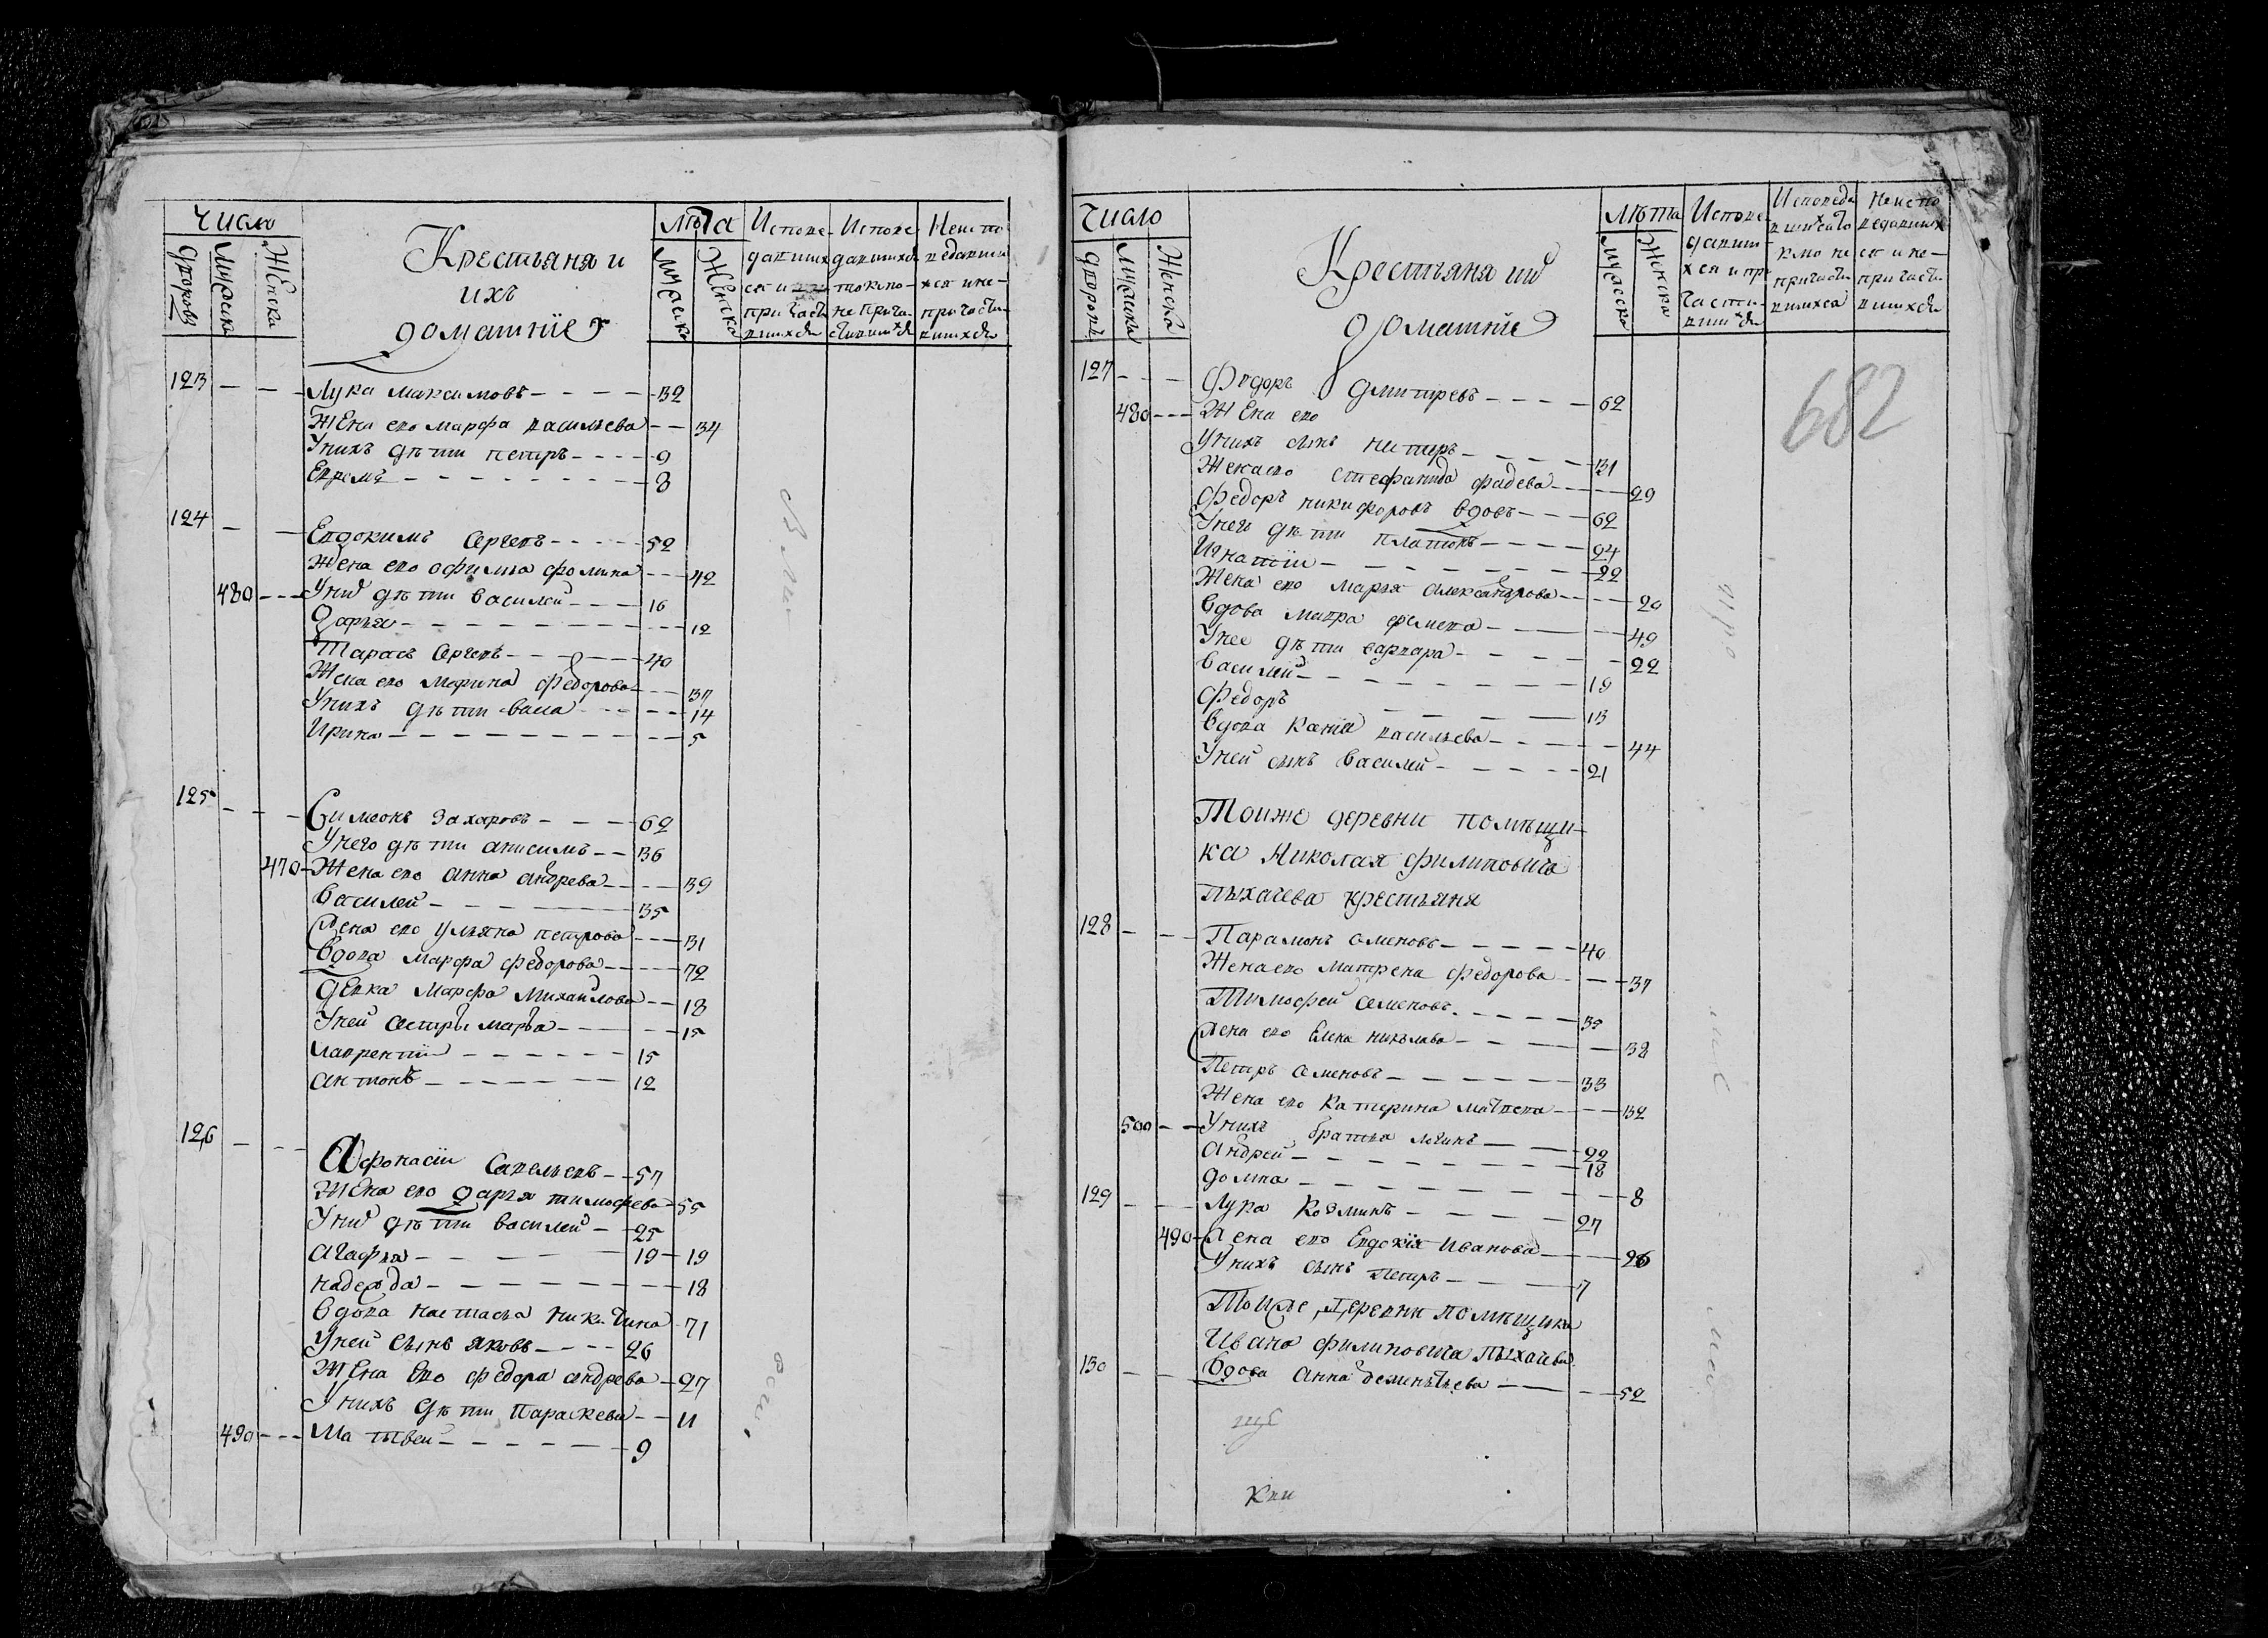 Число
Дворовъ
Мужеска
Женска
Крестьяня и
ихъ
домашніе
Лѣта
Мужеска
Женска
Испове-
давших
ся и
причасти
вшихся
Испове
давшихся
токмо
не прича-
стившихся
Неиспо
ведавши
хся и не-
причасти
вшихся
123 - - - Лука Максимовъ - - - - 32
Жена его Марфа Васильева - - 34
У нихъ дѣти Петръ - - - - 9
Ефремъ - - - - - - - - 8
124 - - Евдокимъ Сергеевъ - - - - 52
Жена его Офимья Фомина - - - 42
480 - - - У них дѣти Василей - - - 16
Дарья - - - - - - - - - 12
Тарасъ Сергевъ - - - - - - 40
Жена его Марина Федорова - - - 37
У нихъ дѣти Васса - - - - - 14
Ирина - - - - - - - - - - 5
125 - - - Симеонъ Захаровъ - - - 62
У него дѣти Анисимъ - - 36
470 - Жена его Анна Андрева - - - - 39
Василей - - - - - - - 35
Жена его Ульяна Петрова - - - 31
Вдова Марфа Федорова - - - - - 72
Девка Марфа Михайлова - - 18
У ней сестры Марья - - - - - 15
Лаврентии - - - - - - 15
Антонъ - - - - - - - 12
126 - - - Афонасіи Савельевъ - - 57
Жена его Дарья Тимофева - 55
У них дѣти Василей - - 25
Агафья - - - - - 19 - 19
Надежда - - - - - - - - 18
Вдова Настасья Никитина - 71
У ней сынъ Яковъ - - - - 26
Жена его Федора Андрева - 27
У нихъ дѣти Параскева - - 11
490 - - - Матвеи - - - - - - - 9
Число
Дворовъ
Мужеска
Женска
Крестьяня их
домашніе
Лѣта
Мужеска
Женска
Испове-
давши-
хся и при
части-
вшихся
Исповеда
вшихся то
кмо не
причасти-
вшихся
Неиспо
ведавших
ся и не-
причасти
вшихся
682
127 - - - Федоръ Дмитревъ - - - - 62
480 - - - Жена его
У нихъ сынъ Петръ - - - - - 31
Жена его Стефанида Фадева - - - - 29
Федоръ Никифоровъ вдовъ - - - 62
У него дѣти Платонъ - - - - 24
Игнатіи - - - - - - - - 22
Жена его Марья Александрова - - - - 20
Вдова Мавра - - - - 49
У нее дѣти Варвара - - - - - - 22
Василей - - - - - - - - 19
Федоръ - - - - 13
Вдова Ксенія Васильева - - - - - 44
У ней сынъ Василей - - - - - 21
Тоиже деревни помѣщи-
ка Николая Филиповича
Пыхачева крестьяня
128 - - - Парамонъ Семеновъ - - - - - 40
Жена его Матрена Федорова - - - 37
Тимофей Семеновъ - - - - - 35
Жена его Елена Николаева - - - - 32
Петръ Семеновъ - - - - - - 33
Жена его Катерина Матвева - - - - 32
500 - - У нихъ братья Логинъ - - - 22
Андрей - - - - - - - - 18
Домна - - - - - - - - - 8
129 - - - Лука Козминъ - - - - - 27
490 - Жена его Евдокія Иванова - - - - 26
У нихъ сынъ Петръ - - - - 7
Тоиже деревни помѣщика
Ивана Филиповича Пыхачева
130 - - - Вдова Анна Дементьева - - - - 52